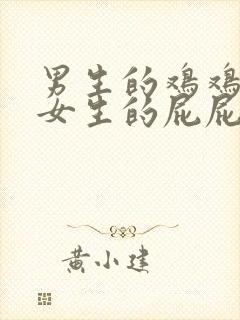 男生的鸡鸡
女生的屁屁
黄小建